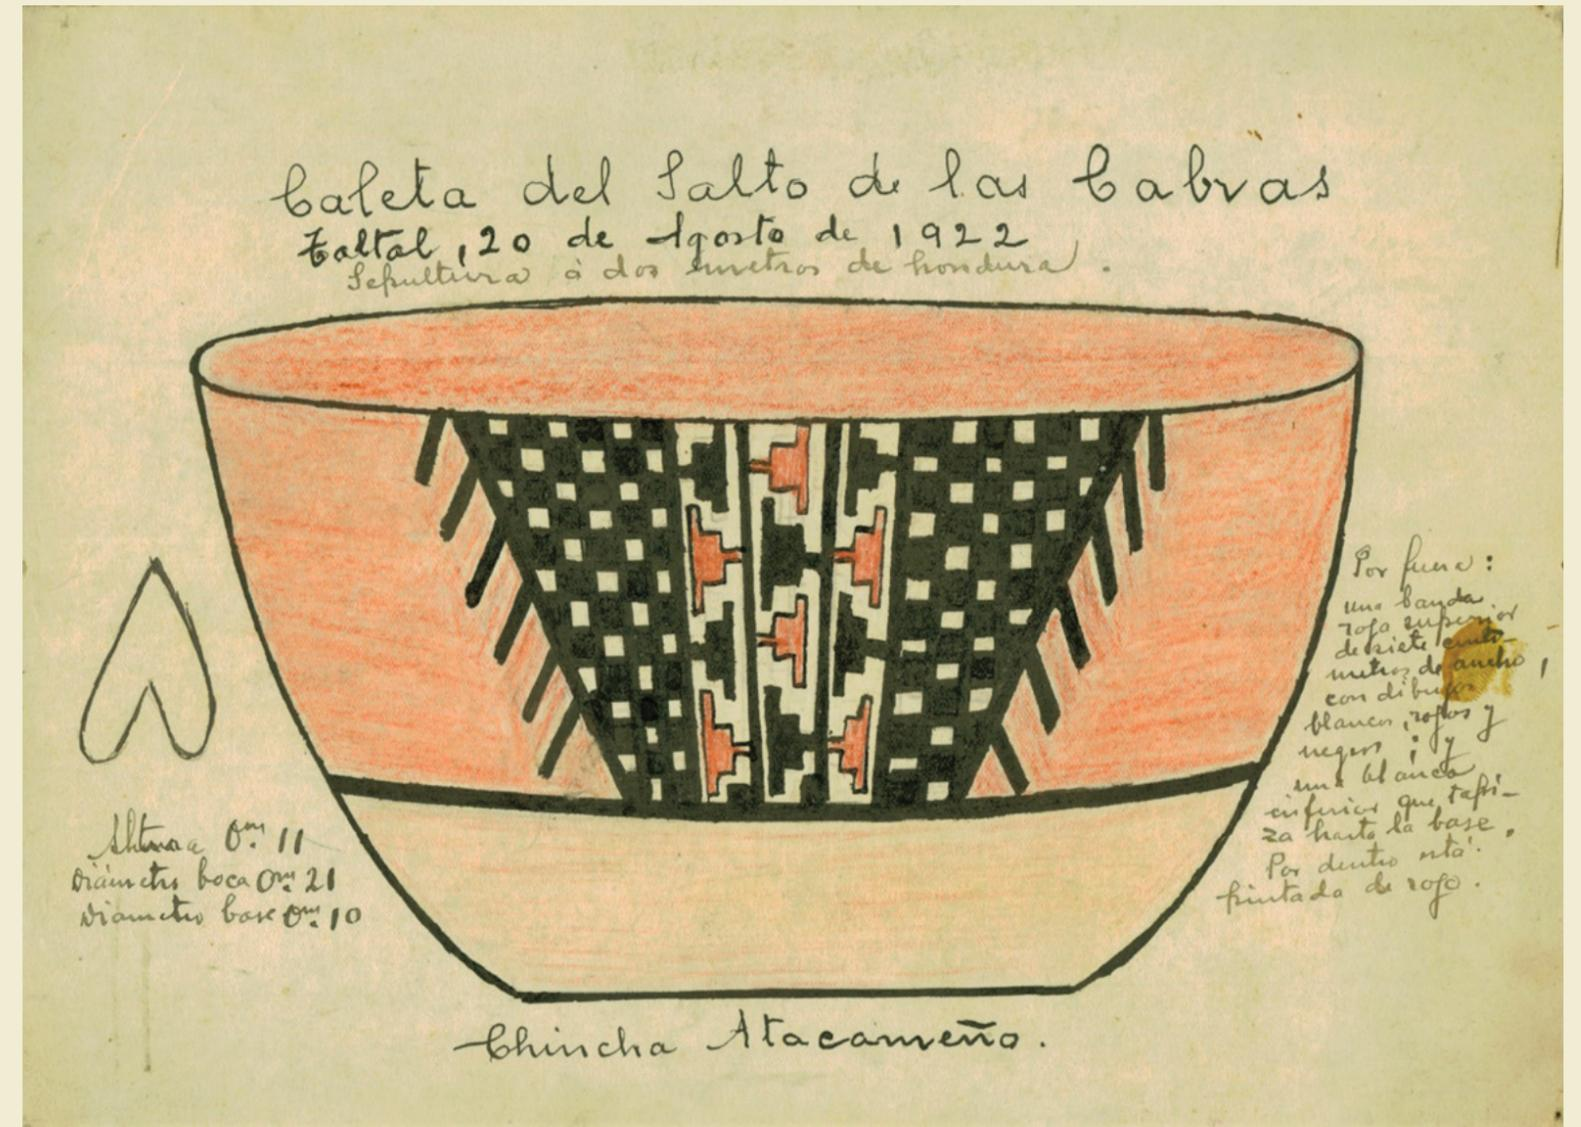 Caleta del Salto de las Cabras
Taltal, 20 de Agosto de 1922
Sepultura à dos metros de hondura.
Altura 0.m 11
Diámetro boca 0m. 21
Diametro base 0m. 10
Por fuera:
una banda
roja superior
de siete centi-
metros de ancho,
con dibujos
blancos, rojos y
negros; y
una blanca
inferior que tapi-
za hasta la base.
Por dentro está
pintada de rojo.
Chincha Atacameño.